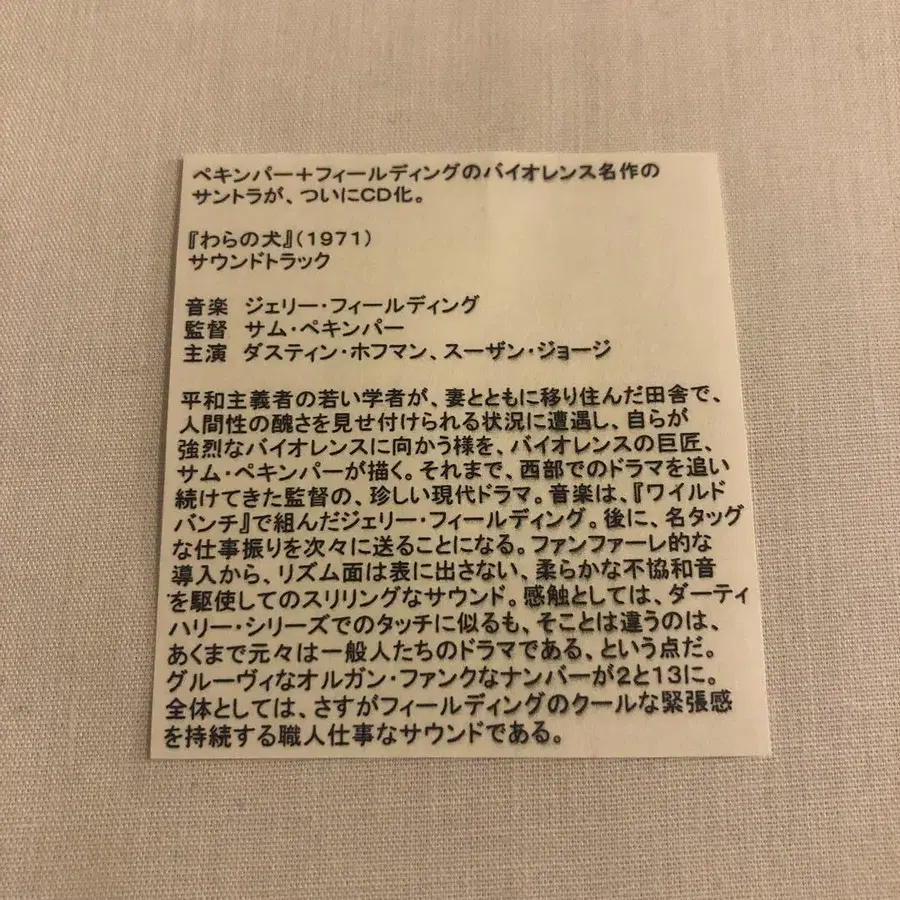 ペキンパー+フィールディングのバイオレンス名作の
サントラが、ついにCD化。
『わらの犬』(1971)
サウンドトラック
音楽 ジェリー・フィールディング
監督 サム・ペキンパー
主演 ダスティン・ホフマン、スーザン・ジョージ
平和主義者の若い学者が、妻とともに移り住んだ田舎で、
人間性の醜さを見せ付けられる状況に遭遇し、自らが
強烈なバイオレンスに向かう様を、バイオレンスの巨匠、
サム・ペキンパーが描く。それまで、西部でのドラマを追い
続けてきた監督の、珍しい現代ドラマ。音楽は、『ワイルド
バンチ』で組んだジェリー・フィールディング。後に、名タッグ
な仕事振りを次々に送ることになる。ファンファーレ的な
導入から、リズム面は表に出さない、柔らかな不協和音
を駆使してのスリリングなサウンド。感触としては、ダーティ
ハリー・シリーズでのタッチに似るも、そことは違うのは、
あくまで元々は一般人たちのドラマである、という点だ。
グルーヴィなオルガン・ファンクなナンバーが2と13に。
全体としては、さすがフィールディングのクールな緊張感
を持続する職人仕事なサウンドである。